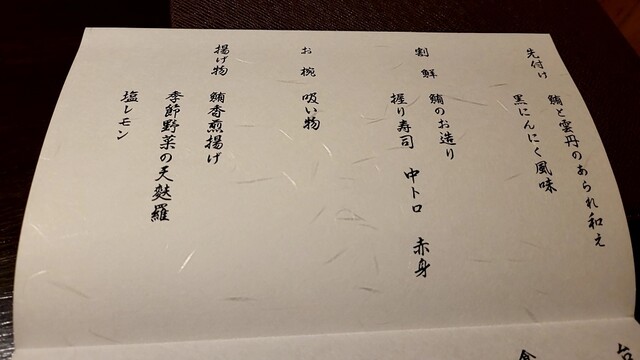 先付け 鮪と雲丹のあられ和え
黒にんにく風味
割鮮 鮪のお造り
握り寿司 中トロ 赤身
お椀 吸い物
揚げ物 鮪香煎揚げ
季節野菜の天麩羅
塩レモン